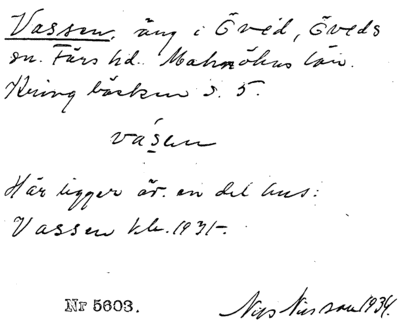 Vassen, äng i Övéd, Öveds
sn. Färs hd. Malmöhus län.
Kring bäcken s. 5.
vása̱n
Här ligger äv. en del hus:
Vassen kk. 1931-.
Nr 5603.
Nils Nilsson 1934.